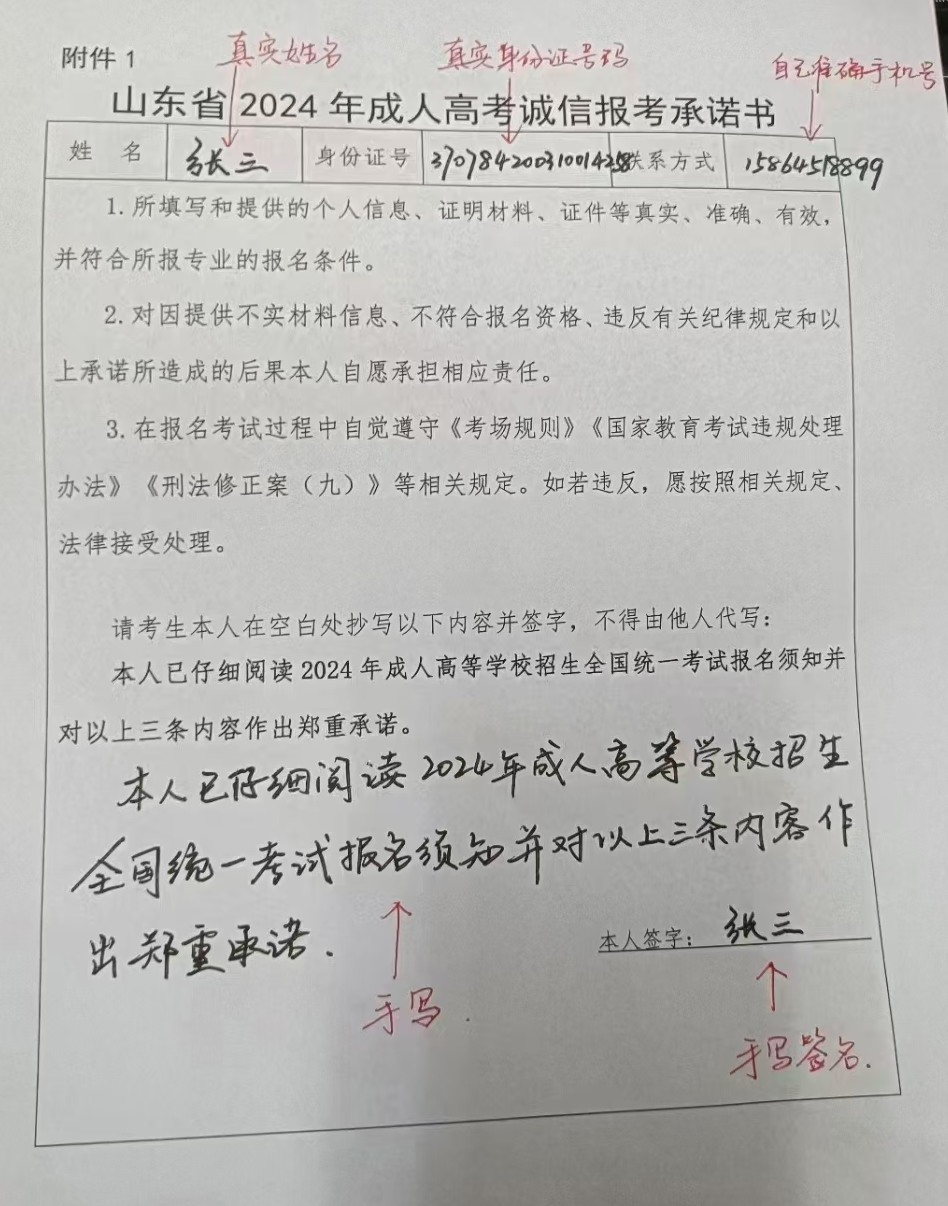 附件 1
真实姓名
真实身份证号码
自己准确手机号
山东省 2024 年成人高考诚信报考承诺书
姓 名 张三 身份证号 370784200310014258 联系方式 15864518899
1.所填写和提供的个人信息、证明材料、证件等真实、准确、有效，
并符合所报专业的报名条件。
2.对因提供不实材料信息、不符合报名资格、违反有关纪律规定和以
上承诺所造成的后果本人自愿承担相应责任。
3.在报名考试过程中自觉遵守《考场规则》《国家教育考试违规处理
办法》《刑法修正案（九）》等相关规定。如若违反，愿按照相关规定、
法律接受处理。
请考生本人在空白处抄写以下内容并签字，不得由他人代写：
本人已仔细阅读 2024 年成人高等学校招生全国统一考试报名须知并
对以上三条内容作出郑重承诺。
本人已仔细阅读2024年成人高等学校招生
全国统一考试报名须知并对以上三条内容作
出郑重承诺.
本人签字：张三
手写.
手写签名.